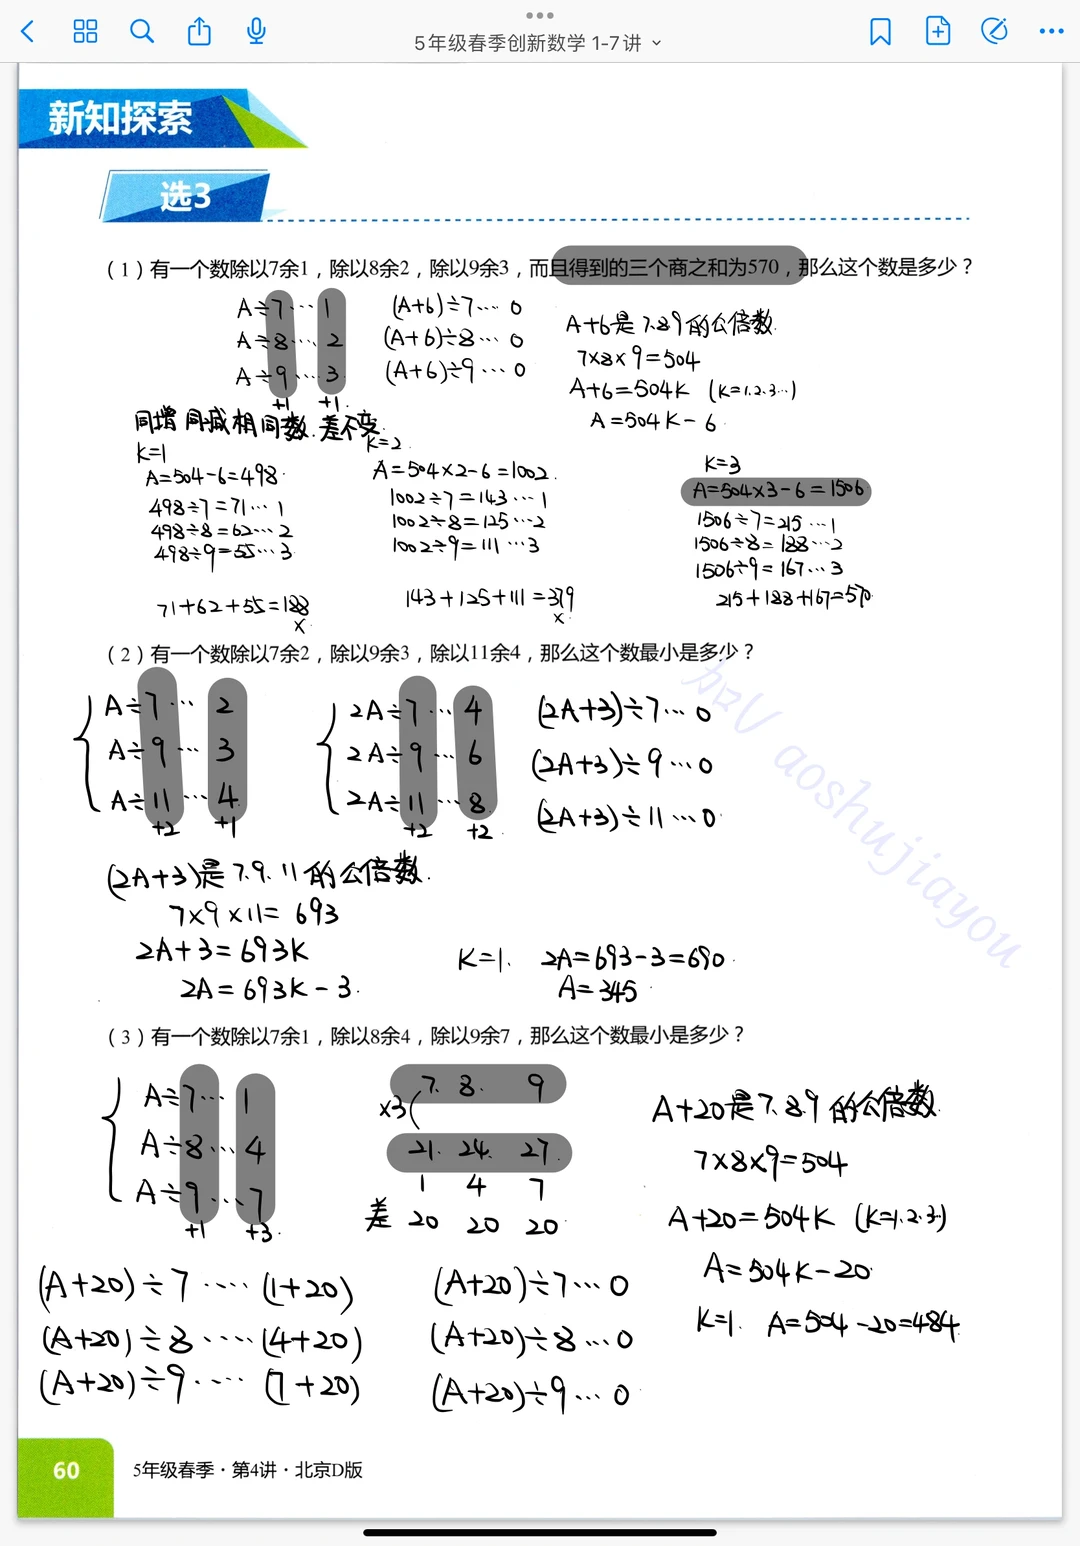 5年级春季创新数学 1-7讲
新知探索
选3
（1）有一个数除以7余1，除以8余2，除以9余3，而且得到的三个商之和为570，那么这个数是多少？
A÷7…1
A÷8…2
A÷9…3
+1 +1
(A+6)÷7…0
(A+6)÷8…0
(A+6)÷9…0
A+6是7.8.9的公倍数.
7×8×9=504
A+6=504K (K=1.2.3…)
A=504K-6
同增同减相同数.差不变
K=1
A=504-6=498
498÷7=71…1
498÷8=62…2
498÷9=55…3
71+62+55=188
×
K=2
A=504×2-6=1002
1002÷7=143…1
1002÷8=125…2
1002÷9=111…3
143+125+111=379
×
K=3
A=504×3-6=1506
1506÷7=215…1
1506÷8=188…2
1506÷9=167…3
215+188+167=570
（2）有一个数除以7余2，除以9余3，除以11余4，那么这个数最小是多少？
A÷7…2
A÷9…3
A÷11…4
+2 +1
2A÷7…4
2A÷9…6
2A÷11…8
+2 +2
(2A+3)÷7…0
(2A+3)÷9…0
(2A+3)÷11…0
(2A+3)是7.9.11的公倍数.
7×9×11=693
2A+3=693K
2A=693K-3
K=1. 2A=693-3=690
A=345
（3）有一个数除以7余1，除以8余4，除以9余7，那么这个数最小是多少？
A÷7…1
A÷8…4
A÷9…7
+1 +3
7. 8. 9
×3
21. 24. 27
1 4 7
差 20 20 20
A+20是7.8.9的公倍数
7×8×9=504
A+20=504K (K=1.2.3)
A=504K-20
K=1. A=504-20=484
(A+20)÷7…(1+20)
(A+20)÷8…(4+20)
(A+20)÷9…(7+20)
(A+20)÷7…0
(A+20)÷8…0
(A+20)÷9…0
aoshujiayou
60
5年级春季·第4讲·北京D版